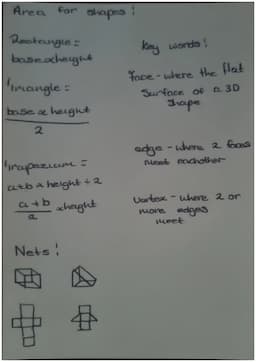 Area for shapes!
Rectangle =
base x height
Triangle =
base x height
2
Trapezium =
a+b x height ÷ 2
a + b
2
x height
Nets!
Key words!
face - where the flat
Surface of a 3D
shape
edge - where 2 faces
meet eachother
Vertex - where 2 or
more edges
meet